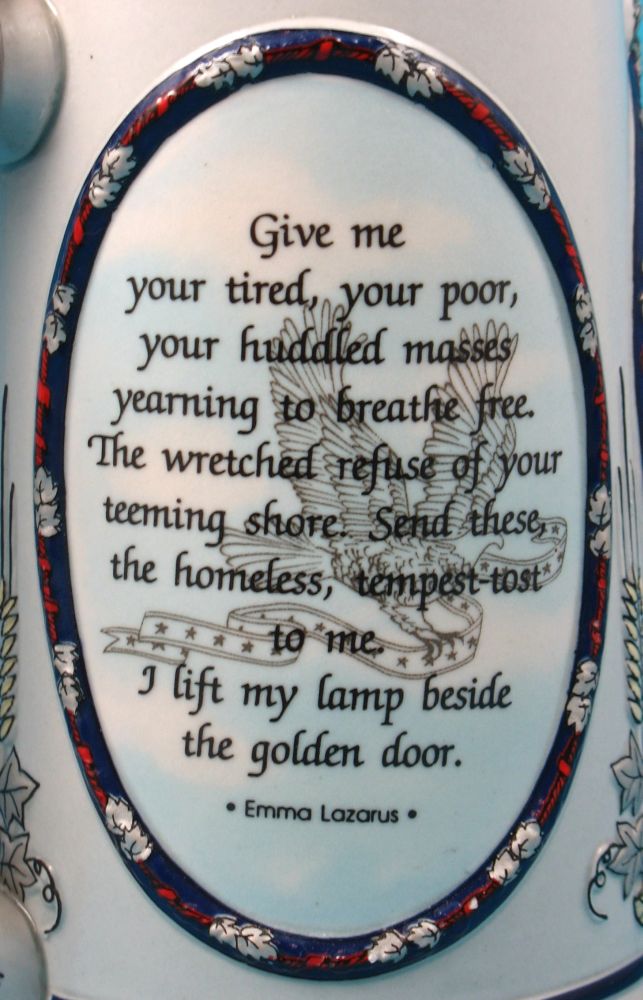 Give me
your tired, your poor,
your huddled masses
yearning to breathe free.
The wretched refuse of your
teeming shore. Send these,
the homeless, tempest-tost
to me.
I lift my lamp beside
the golden door.
• Emma Lazarus •